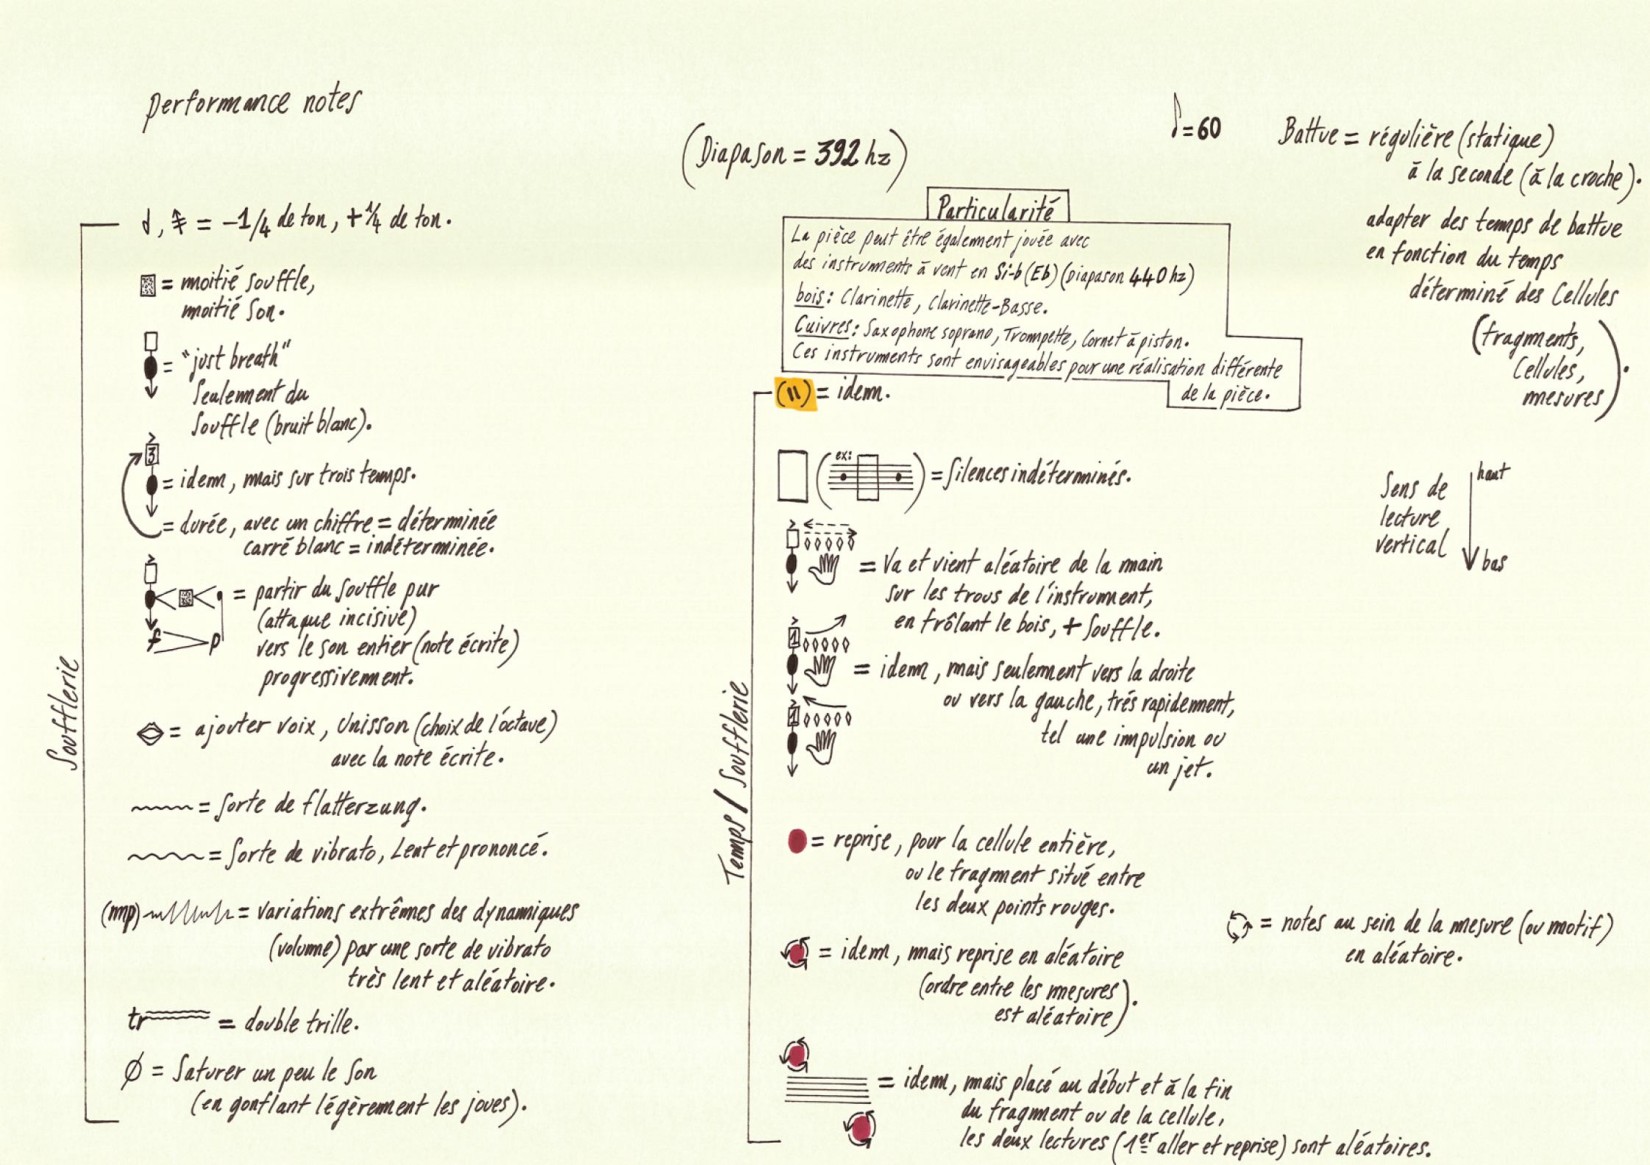 performance notes
(Diapason = 392 hz)
=60
Battue = régulière (statique)
à la seconde (à la croche).
adapter des temps de battue
en fonction du temps
déterminé des Cellules
(fragments,
Cellules,
mesures).
Sens de
lecture
vertical
haut
bas
Soufflerie
= -1/4 de ton, +1/4 de ton.
= moitié souffle,
moitié son.
= "just breath"
Seulement du
Souffle (bruit blanc).
3
= idem, mais sur trois temps.
= durée, avec un chiffre = déterminée
carré blanc = indéterminée.
= partir du souffle pur
(attaque incisive)
f p
vers le son entier (note écrite)
progressivement.
= ajouter voix, Unisson (choix de l'octave)
avec la note écrite.
= Sorte de flatterzung.
= Sorte de vibrato, Lent et prononcé.
(mp) = variations extrêmes des dynamiques
(volume) par une sorte de vibrato
très lent et aléatoire.
tr = double trille.
Ø = Saturer un peu le son
(en gonflant légèrement les joues).
Particularité
La pièce peut être également jouée avec
des instruments à vent en Si-b (Eb) (diapason 440 hz)
bois: Clarinette, Clarinette-Basse.
Cuivres: Saxophone soprano, Trompette, Cornet à piston.
Ces instruments sont envisageables pour une réalisation différente
de la pièce.
Temps / Soufflerie
(11) = idem.
(ex: ) = Silences indéterminés.
= Va et vient aléatoire de la main
sur les trous de l'instrument,
en frôlant le bois, + Souffle.
1
= idem, mais seulement vers la droite
ou vers la gauche, trés rapidement,
1
tel une impulsion ou
un jet.
= reprise, pour la cellule entière,
ou le fragment situé entre
les deux points rouges.
= idem, mais reprise en aléatoire
(ordre entre les mesures
est aléatoire).
= notes au sein de la mesure (ou motif)
en aléatoire.
= idem, mais placé au début et à la fin
du fragment ou de la cellule,
les deux lectures (1er aller et reprise) sont aléatoires.